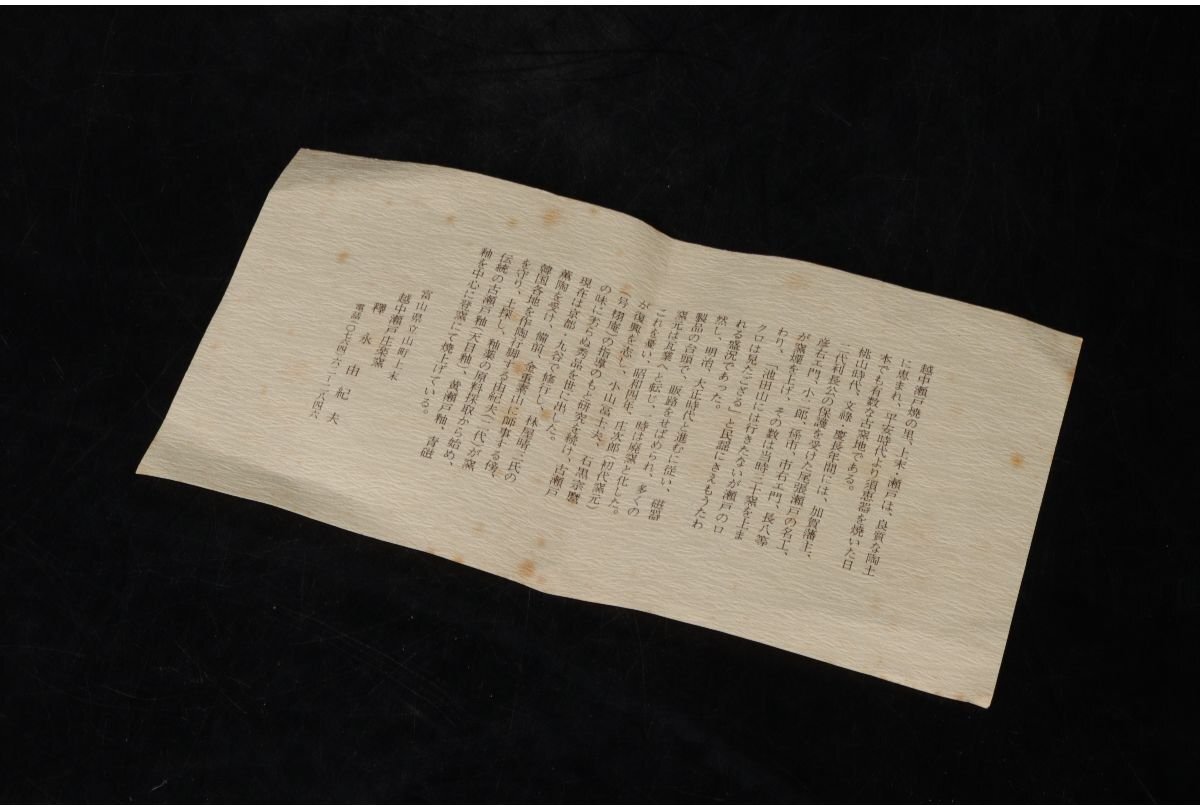 越中瀬戸焼の里、上末・瀬戸は、良質な陶土
に恵まれ、平安時代より須恵器を焼いた日
本でも有数な古窯地である。
桃山時代、文禄・慶長年間には、加賀藩主、
二代利長公の保護を受けた尾張瀬戸の名工、
彦右エ門、小二郎、孫市、市右エ門、長八等
が窯煙を上げ、その数は当時三十窯を上ま
わり、「池田山には行きたないが瀬戸のロ
クロは見たござる」と民謡にさえもうたわ
れる盛況であった。
然し、明治、大正時代と進むに従い、磁器
製品の台頭で、販路をせばめられ、多くの
窯元は瓦業へと転じ、一時は廃窯と化した。
これを憂い、昭和四年、庄次郎(初代窯元)
が復興を志し、小山冨士夫、石黒宗麿
(号・栩庵)の指導のもと研究を続け、古瀬戸
の味に劣らぬ秀品を世に出した。
現在は京都・九谷で修行し、林屋晴三氏の
薫陶を受け、備前、金重素山に師事する傍、
韓国各地を作陶行脚する由紀夫(二代)が窯
を守り、土採し、釉薬の原料採取から始め、
伝統の古瀬戸釉(天目釉)、黄瀬戸釉、青磁
釉を中心に窖窯にて焼上げている。
富山県立山町上末
越中瀬戸庄楽窯
釋永由紀夫